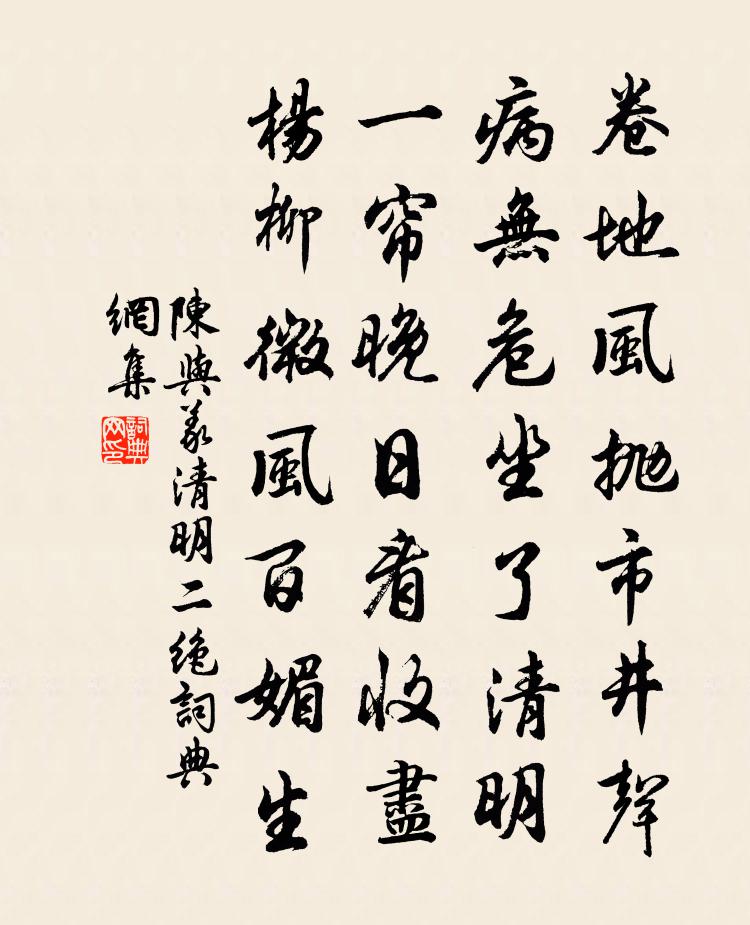 卷地風抛市井聲
病無危坐了清明
一帘晚日看收盡
楊柳微風百媚生
陳與義清明二絶詞典
網集
詞典
网印